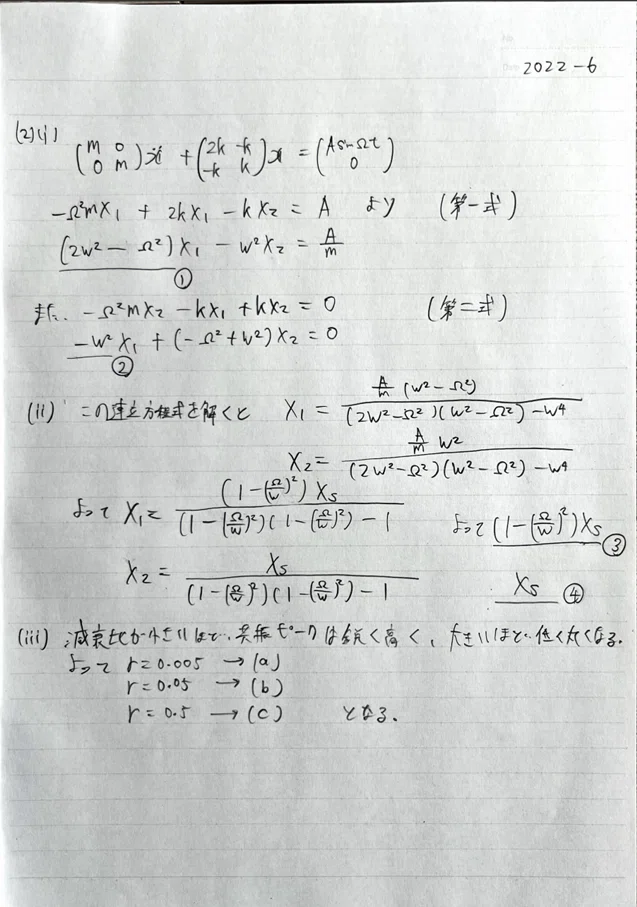 No.
Date 2022-6
(2)(i) (m 0 0 m)ẍ + (2k -k -k k)x = (A sin Ωt 0)
-Ω²mX₁ + 2kX₁ - kX₂ = A より (第一式)
(2ω² - Ω²)X₁ - ω²X₂ = A/m
①
また、 -Ω²mX₂ - kX₁ + kX₂ = 0 (第二式)
-ω²X₁ + (-Ω² + ω²)X₂ = 0
②
(ii) この連立方程式を解くと X₁ = A/m (ω² - Ω²) / (2ω² - Ω²)(ω² - Ω²) - ω⁴
X₂ = A/m ω² / (2ω² - Ω²)(ω² - Ω²) - ω⁴
よって X₁ = (1 - (Ω/ω)²) Xs / (1 - (Ω/ω)²)(1 - (Ω/ω)²) - 1 よって (1 - (Ω/ω)²)Xs ③
X₂ = Xs / (1 - (Ω/ω)²)(1 - (Ω/ω)²) - 1 Xs ④
(iii) 減衰比が小さいほど、共振ピークは鋭く高く、大きいほど低く丸くなる.
よって r = 0.005 → (a)
r = 0.05 → (b)
r = 0.5 → (c) となる.